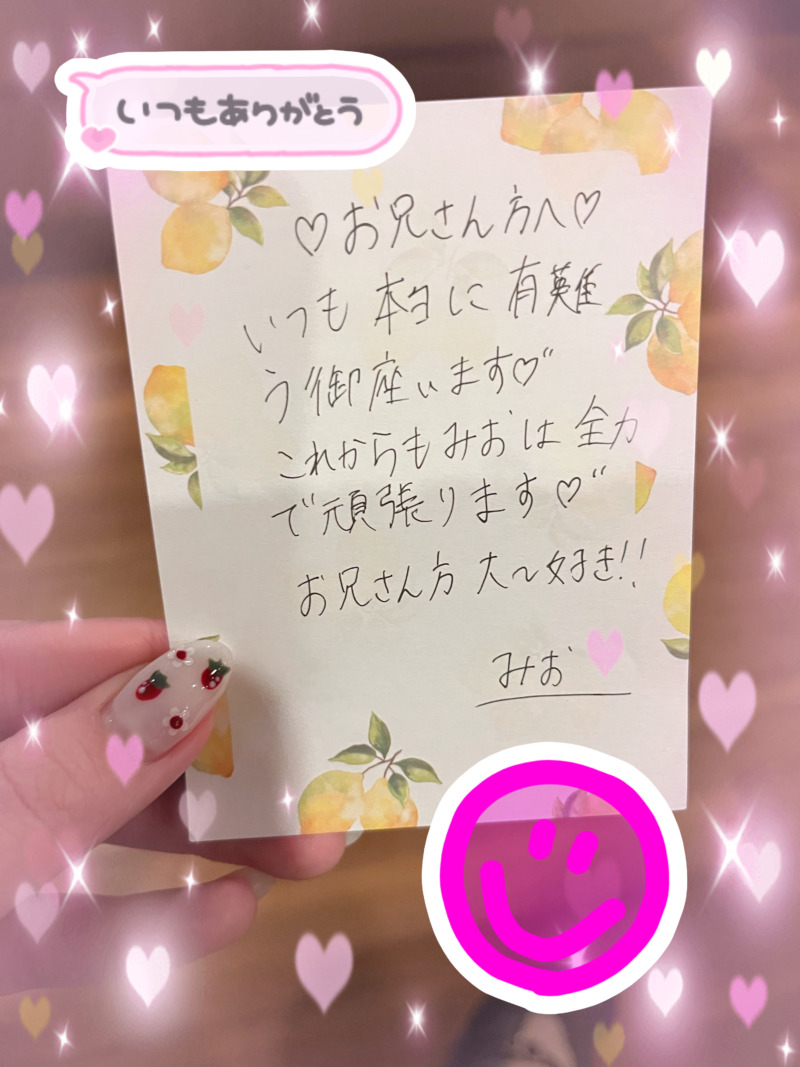 いつもありがとう
♡お兄さん方へ♡
いつも本当に有難
う御座います♡"
これからもみおは全力
で頑張ります♡"
お兄さん方大〜好き!!
みお